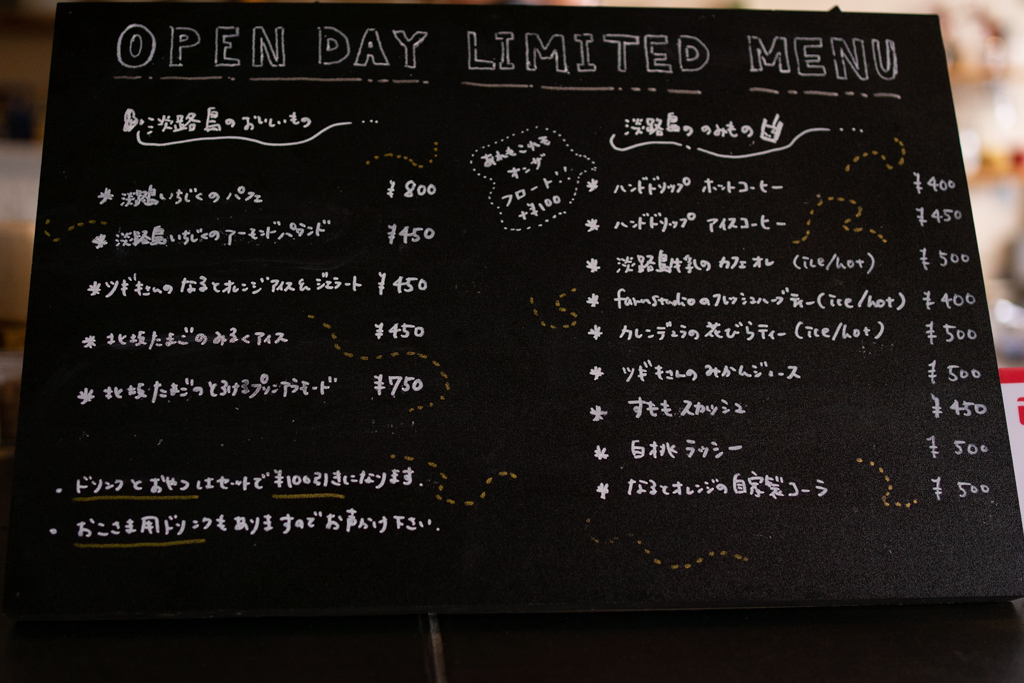 OPEN DAY LIMITED MENU
淡路島のおいしいもの ...
* 淡路島いちじくのパフェ ¥800
* 淡路島いちじくのアーモンドパウンド ¥450
* ツギキさんの なるとオレンジアイス & ジェラート ¥450
* 北坂たまごのみるくアイス ¥450
* 北坂たまごのとろけるプリンアラモード ¥750
・ドリンクとおやつはセットで¥100引きになります.
・おこさま用ドリンクもありますのでお声かけ下さい.
あれもこれも
オンザ
フロート!!
+¥100
淡路島ののみもの ...
* ハンドドリップ ホットコーヒー ¥400
* ハンドドリップ アイスコーヒー ¥450
* 淡路島牛乳の カフェオレ (ice/hot) ¥500
* farmstudioのフレッシュハーブティー(ice/hot) ¥400
* カレンデュラの花びらティー (ice/hot) ¥500
* ツギキさんの みかんジュース ¥500
* すもも スカッシュ ¥450
* 白桃 ラッシー ¥500
* なるとオレンジの自家製コーラ ¥500